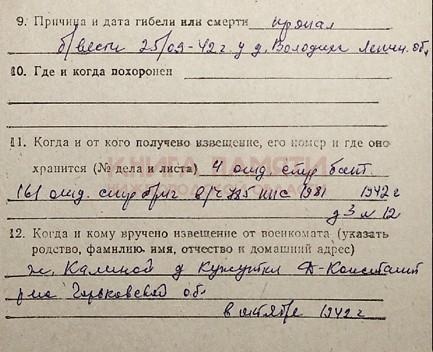 9. Причина и дата гибели или смерти пропал
б/вести 25/09-42 г. у д. Володкин Ленин. об.
10. Где и когда похоронен
11. Когда и от кого получено извещение, его номер и где оно
хранится (№ дела и листа) 4 отд стр бат.
КНИГА ПАМЯТИ
161 отд. стр бриг в/ч 785 ппс 1981 1942 г
д 3 л 12
12. Когда и кому вручено извещение от военкомата (указать
родство, фамилию, имя, отчество и домашний адрес)
ж. Калиной д Кужутки Д-Констант
р-на Горьковской об.
в октябре 1942 г